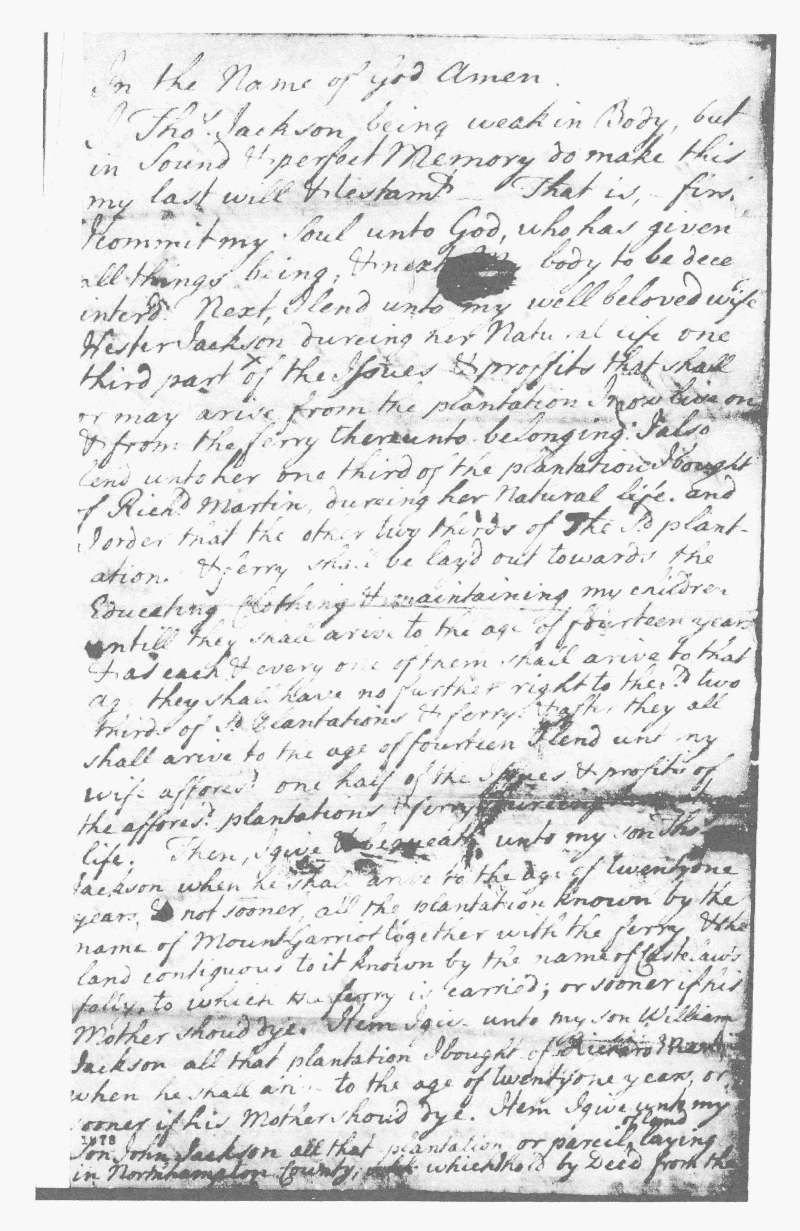 In the Name of God Amen.
I Thos. Jackson being weak in Body, but
in Sound & perfect Memory do make this
my last will & testamt — That is, — first
I commit my Soul unto God, who has given
all things being; & next my body to be dece
interd. Next, I lend unto my well beloved wife
Hester Jackson dureing her Natural life one
third part of the Issues & proffits that shall
or may arise from the plantation I now live on
& from the ferry thereunto belonging. I also
lend unto her one third of the plantation I bought
of Richd Martin, dureing her Natural life. and
I order that the other two thirds of the sd plant-
ation. & ferry shall be layd out towards the
Educating Clothing & maintaining my children
untill they shall arive to the age of fourteen years
& as each & every one of them shall arive to that
age they shall have no further right to the sd two
thirds of sd Plantations & ferry. & after they all
shall arive to the age of fourteen I lend unto my
wife afforesd one half of the Issues & profits of
the afforesd plantations & ferry dureing
life. Then, I give & bequeath unto my son Thos
Jackson when he shall arive to the age of twenty one
years, & not sooner, all the plantation known by the
name of Mount Garriot together with the ferry & the
land contiguous to it known by the name of Castelaw's
folly, to which the ferry is carried; or sooner if his
Mother shoud dye. Item I give unto my son William
Jackson all that plantation I bought of Richard Martin
when he shall arive to the age of twenty one years, or
sooner if his Mother shoud dye. Item I give unto my
Son John Jackson all that plantation or parcil of land laying
in Northhampton County; which I hold by Deed from the